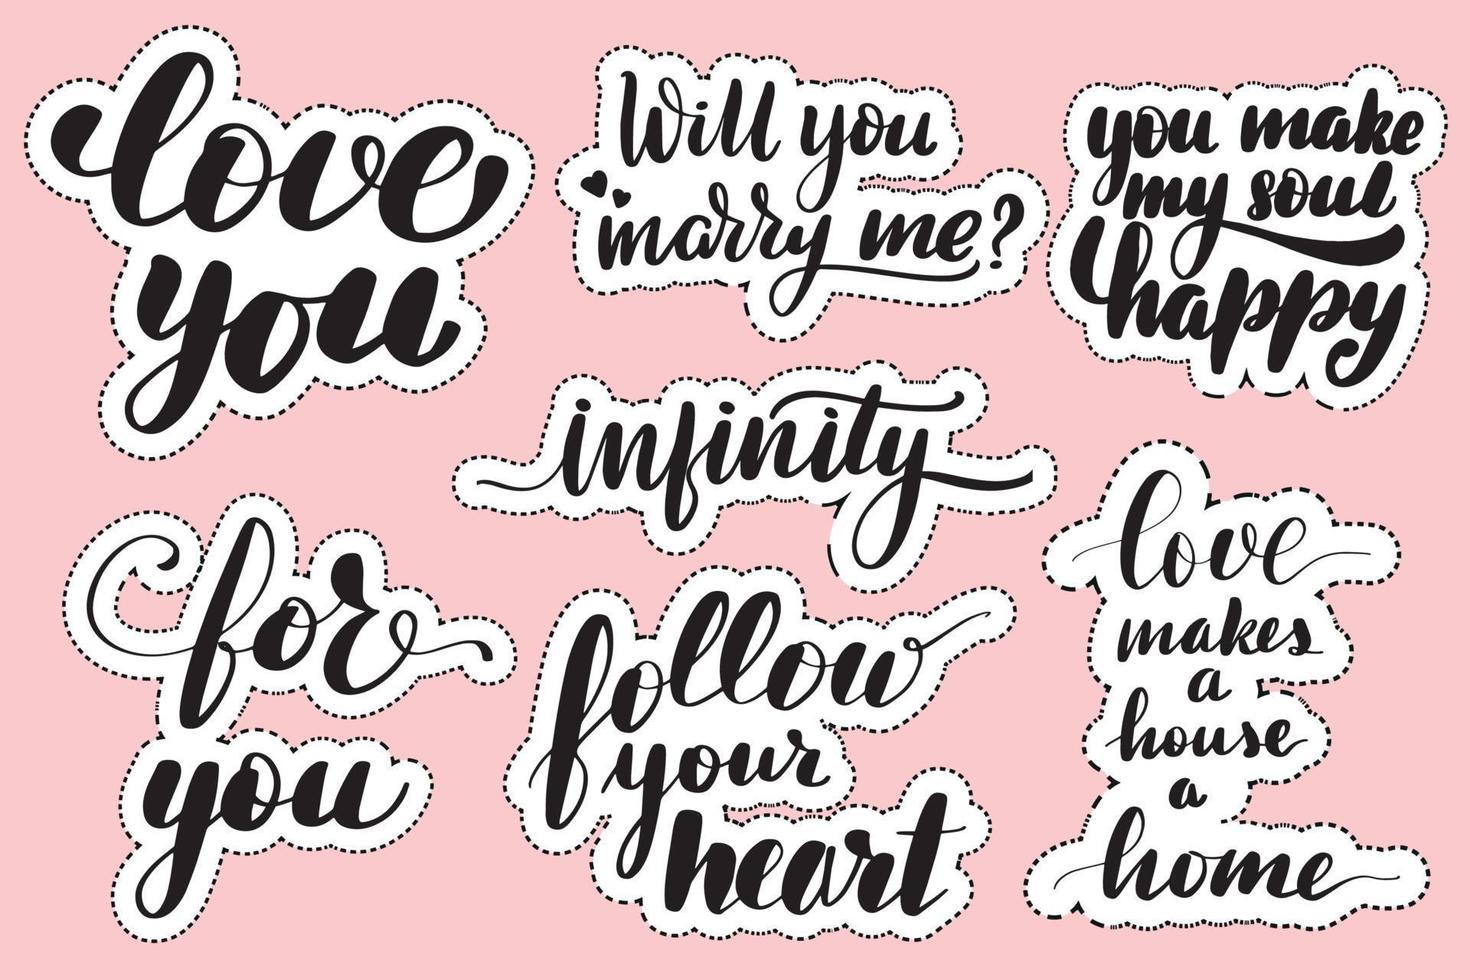 love
you
Will you
marry me?
you make
my soul
happy
infinity
for
you
follow
your
heart
love
makes
a
house
a
home